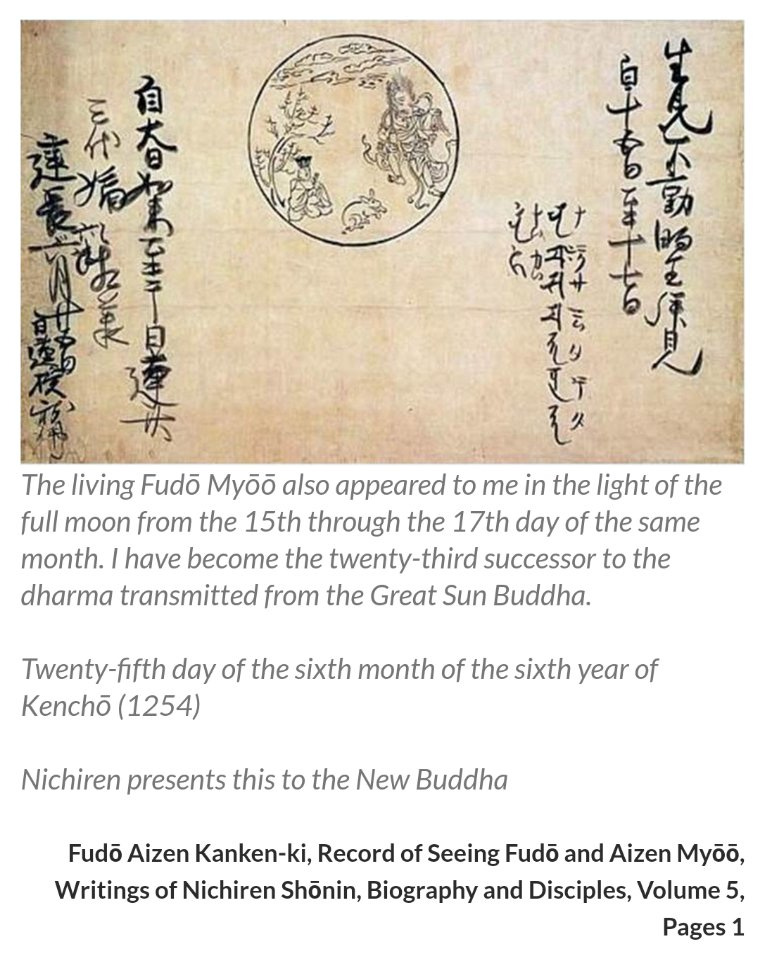 生身不動明王拝見
自十五日至十七日
自大日如来至于日蓮廿
三代嫡々相承
建長六年六月廿五日
日蓮授新仏
The living Fudō Myōō also appeared to me in the light of the
full moon from the 15th through the 17th day of the same
month. I have become the twenty-third successor to the
dharma transmitted from the Great Sun Buddha.
Twenty-fifth day of the sixth month of the sixth year of
Kenchō (1254)
Nichiren presents this to the New Buddha
Fudō Aizen Kanken-ki, Record of Seeing Fudō and Aizen Myōō,
Writings of Nichiren Shōnin, Biography and Disciples, Volume 5,
Pages 1